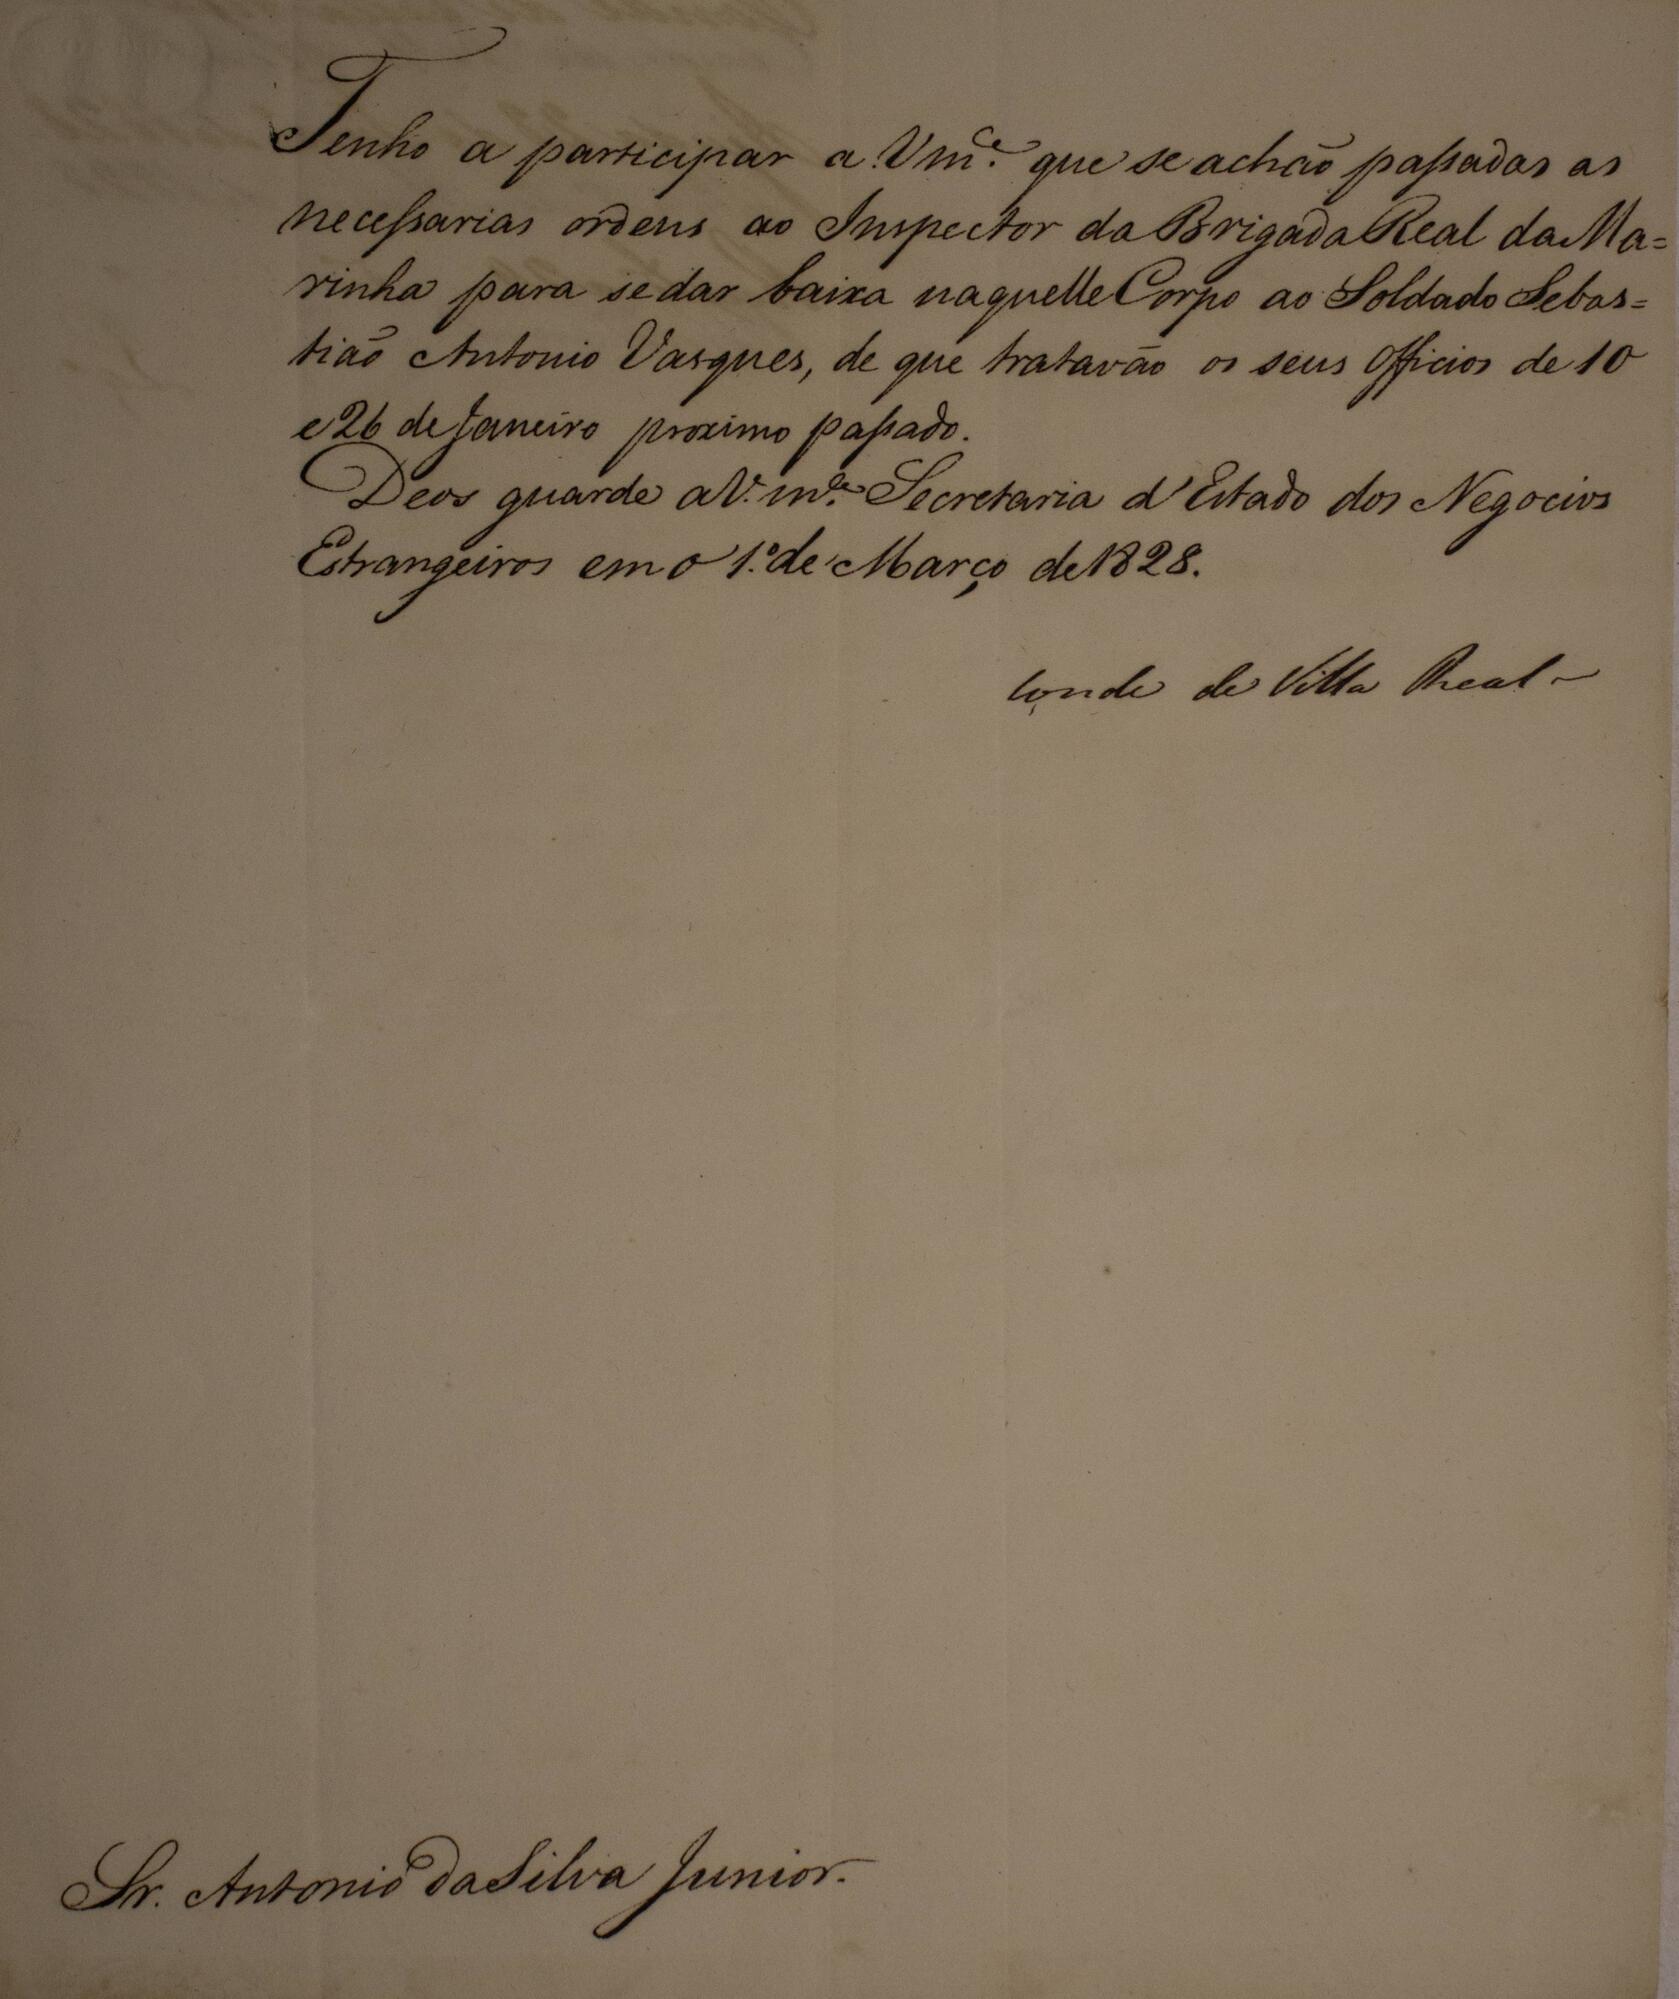 Tenho a participar a Vm.ce que se achão passadas as
necessarias ordens ao Inspector da Brigada Real da Ma=
rinha para se dar baixa naquelle Corpo ao Soldado Sebas=
tião Antonio Vasques, de que tratavão os seus Officios de 10
e 26 de Janeiro proximo passado.
Deos guarde a V. m.ce Secretaria d'Estado dos Negocios
Estrangeiros em o 1.º de Março de 1828.
Conde de Villa Real
Sr. Antonio da Silva Junior.